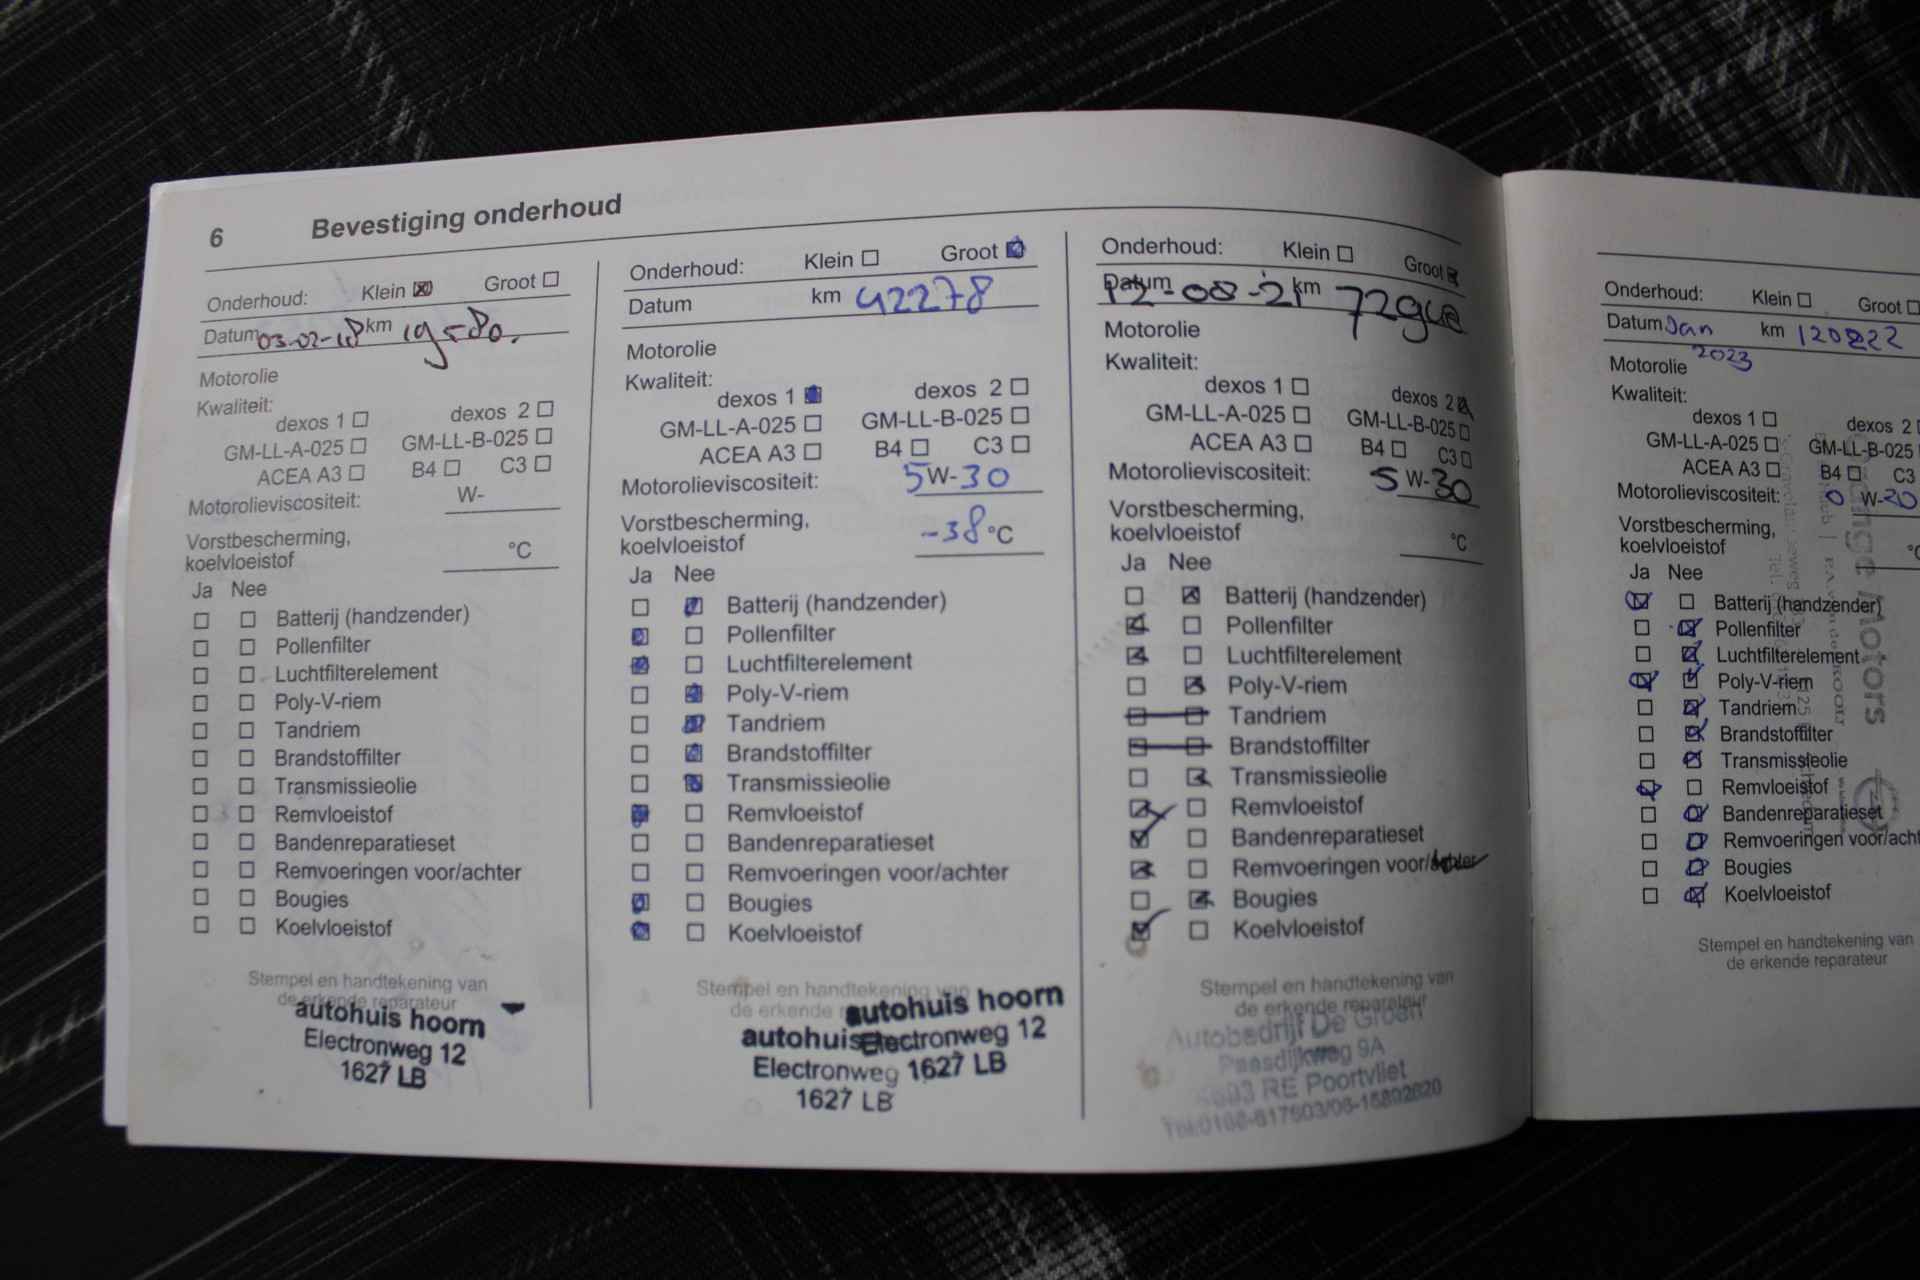 6 Bevestiging onderhoud
Onderhoud: Klein Groot
Datum 03-02-18 km 19580.
Motorolie
Kwaliteit:
dexos 1 dexos 2
GM-LL-A-025 GM-LL-B-025
ACEA A3 B4 C3
Motorolieviscositeit: W-
Vorstbescherming,
koelvloeistof °C
Ja Nee
Batterij (handzender)
Pollenfilter
Luchtfilterelement
Poly-V-riem
Tandriem
Brandstoffilter
Transmissieolie
Remvloeistof
Bandenreparatieset
Remvoeringen voor/achter
Bougies
Koelvloeistof
Stempel en handtekening van
de erkende reparateur
autohuis hoorn
Electronweg 12
1627 LB
Onderhoud: Klein Groot
Datum km 42278
Motorolie
Kwaliteit:
dexos 1 dexos 2
GM-LL-A-025 GM-LL-B-025
ACEA A3 B4 C3
Motorolieviscositeit: 5W-30
Vorstbescherming,
koelvloeistof -38 °C
Ja Nee
Batterij (handzender)
Pollenfilter
Luchtfilterelement
Poly-V-riem
Tandriem
Brandstoffilter
Transmissieolie
Remvloeistof
Bandenreparatieset
Remvoeringen voor/achter
Bougies
Koelvloeistof
Stempel en handtekening van
de erkende
autohuis hoorn
Electronweg 12
1627 LB
autohuis
Electronweg
1627 LB
Onderhoud: Klein Groot
Datum 12-08-21 km
Motorolie
Kwaliteit:
dexos 1 dexos 2
GM-LL-A-025 GM-LL-B-025
ACEA A3 B4 C3
Motorolieviscositeit: 5 W-30
Vorstbescherming,
koelvloeistof °C
Ja Nee
Batterij (handzender)
Pollenfilter
Luchtfilterelement
Poly-V-riem
Tandriem
Brandstoffilter
Transmissieolie
Remvloeistof
Bandenreparatieset
Remvoeringen voor/achter
Bougies
Koelvloeistof
Stempel en handtekening van
de erkende reparateur
Autobedrijf De Groen
Paasdijkweg 9A
RE Poortvliet
Onderhoud: Klein Groot
Datum Jan 2023 km
Motorolie
Kwaliteit:
dexos 1 dexos 2
GM-LL-A-025 GM-LL-B-025
ACEA A3 B4 C3
Motorolieviscositeit: 0 W-20
Vorstbescherming,
koelvloeistof
Ja Nee
Batterij (handzender)
Pollenfilter
Luchtfilterelement
Poly-V-riem
Tandriem
Brandstoffilter
Transmissieolie
Remvloeistof
Bandenreparatieset
Remvoeringen voor/ach
Bougies
Koelvloeistof
Motors
Stempel en handtekening van
de erkende reparateur